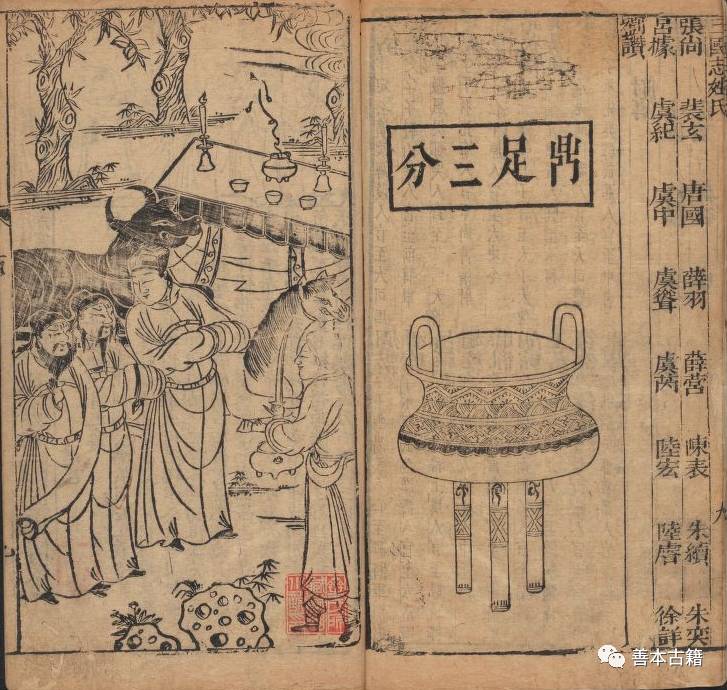 三國志姓氏
張尚 裴玄 唐國 薛羽 薛營 陳表 朱績 朱奕
呂據 虞紀 虞中 虞聳 陸宏 徐詳
劉讚
鼎足三分
善本古籍